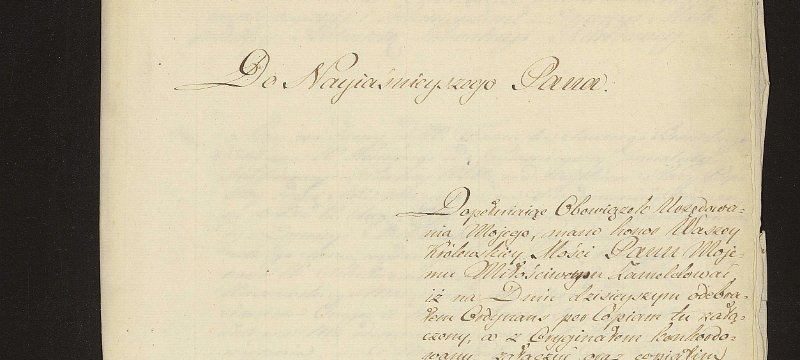 Do Nayiaśnieyszego Pana.
Dopełniaiąc Obowiązek Urzędowa-
nia Mojego, mam honor Waszey
Królewskiey Mości Panu Moje-
mu Miłościwemu Zameldować
iż na Dniu dzisieyszym odebra-
łem Ordynans per Copiam tu załą-
czony, a z Oryginałem konkordo-
wany, załączam oraz